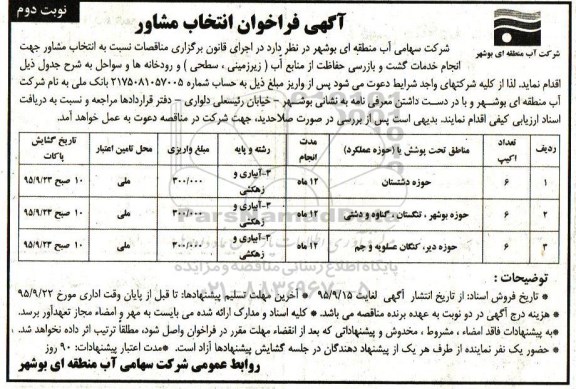 نوبت دوم
آگهی فراخوان انتخاب مشاور
شرکت آب منطقه ای بوشهر
شرکت سهامی آب منطقه ای بوشهر در نظر دارد در اجرای قانون برگزاری مناقصات نسبت به انتخاب مشاور جهت
انجام خدمات گشت و بازرسی حفاظت از منابع آب ( زیرزمینی ، سطحی ) و رودخانه ها و سواحل به شرح جدول ذیل
اقدام نماید. لذا از کلیه شرکتهای واجد شرایط دعوت می شود پس از واریز مبلغ ذیل به حساب شماره ۲۱۷۵۰۸۱۰۵۷۰۰۵ بانک ملی به نام شرکت
آب منطقه ای بوشهر و با در دست داشتن معرفی نامه به نشانی بوشهر - خیابان رئیسعلی دلواری - دفتر قراردادها مراجعه و نسبت به دریافت
اسناد ارزیابی کیفی اقدام نمایند. بدیهی است پس از بررسی در صورت صلاحدید، جهت شرکت در مناقصه دعوت به عمل خواهد آمد.
ردیف تعداد اکیپ مناطق تحت پوشش یا (حوزه عملکرد) مدت انجام رشته و پایه مبلغ واریزی محل تامین اعتبار تاریخ گشایش پاکات
۱ ۶ حوزه دشتستان ۱۲ ماه ۳-آبیاری و زهکشی ۳۰۰/۰۰۰ ملی ۱۰ صبح ۹۵/۹/۲۳
۲ ۶ حوزه بوشهر ، تنگستان ، گناوه و دشتی ۱۲ ماه ۳-آبیاری و زهکشی ۳۰۰/۰۰۰ ملی ۱۰ صبح ۹۵/۹/۲۳
۳ ۶ حوزه دیر، کنگان عسلویه و جم ۱۲ ماه ۳-آبیاری و زهکشی ۳۰۰/۰۰۰ ملی ۱۰ صبح ۹۵/۹/۲۳
پایگاه اطلاع رسانی مناقصه و مزایده
۰۲۱-۸۸۳۴۹۶۷۰-۵
توضیحات :
* تاریخ فروش اسناد: از تاریخ انتشار آگهی لغایت ۹۵/۹/۱۵ * آخرین مهلت تسلیم پیشنهادها: تا قبل از پایان وقت اداری مورخ ۹۵/۹/۲۲
* هزینه درج آگهی در دو نوبت به عهده برنده مناقصه می باشد. * کلیه اسناد و مدارک ارائه شده می بایست به مهر و امضاء مجاز تعهدآور برسد.
* به پیشنهادات فاقد امضاء ، مشروط ، مخدوش و پیشنهاداتی که بعد از انقضاء مهلت مقرر در فراخوان واصل شود، مطلقاً ترتیب اثر داده نخواهد شد .
* حضور یک نفر نماینده از طرف هر یک از پیشنهاد دهندگان در جلسه گشایش پیشنهادها آزاد است. *مدت اعتبار پیشنهادات: ۹۰ روز
روابط عمومی شرکت سهامی آب منطقه ای بوشهر